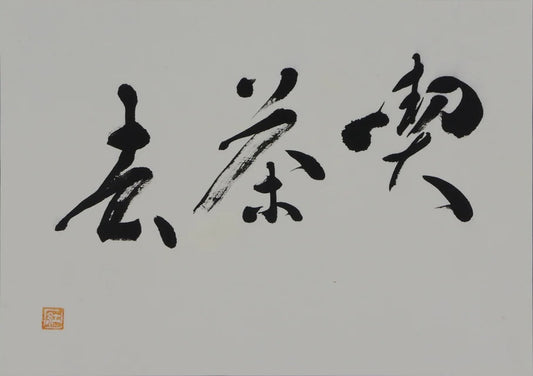 喫茶去